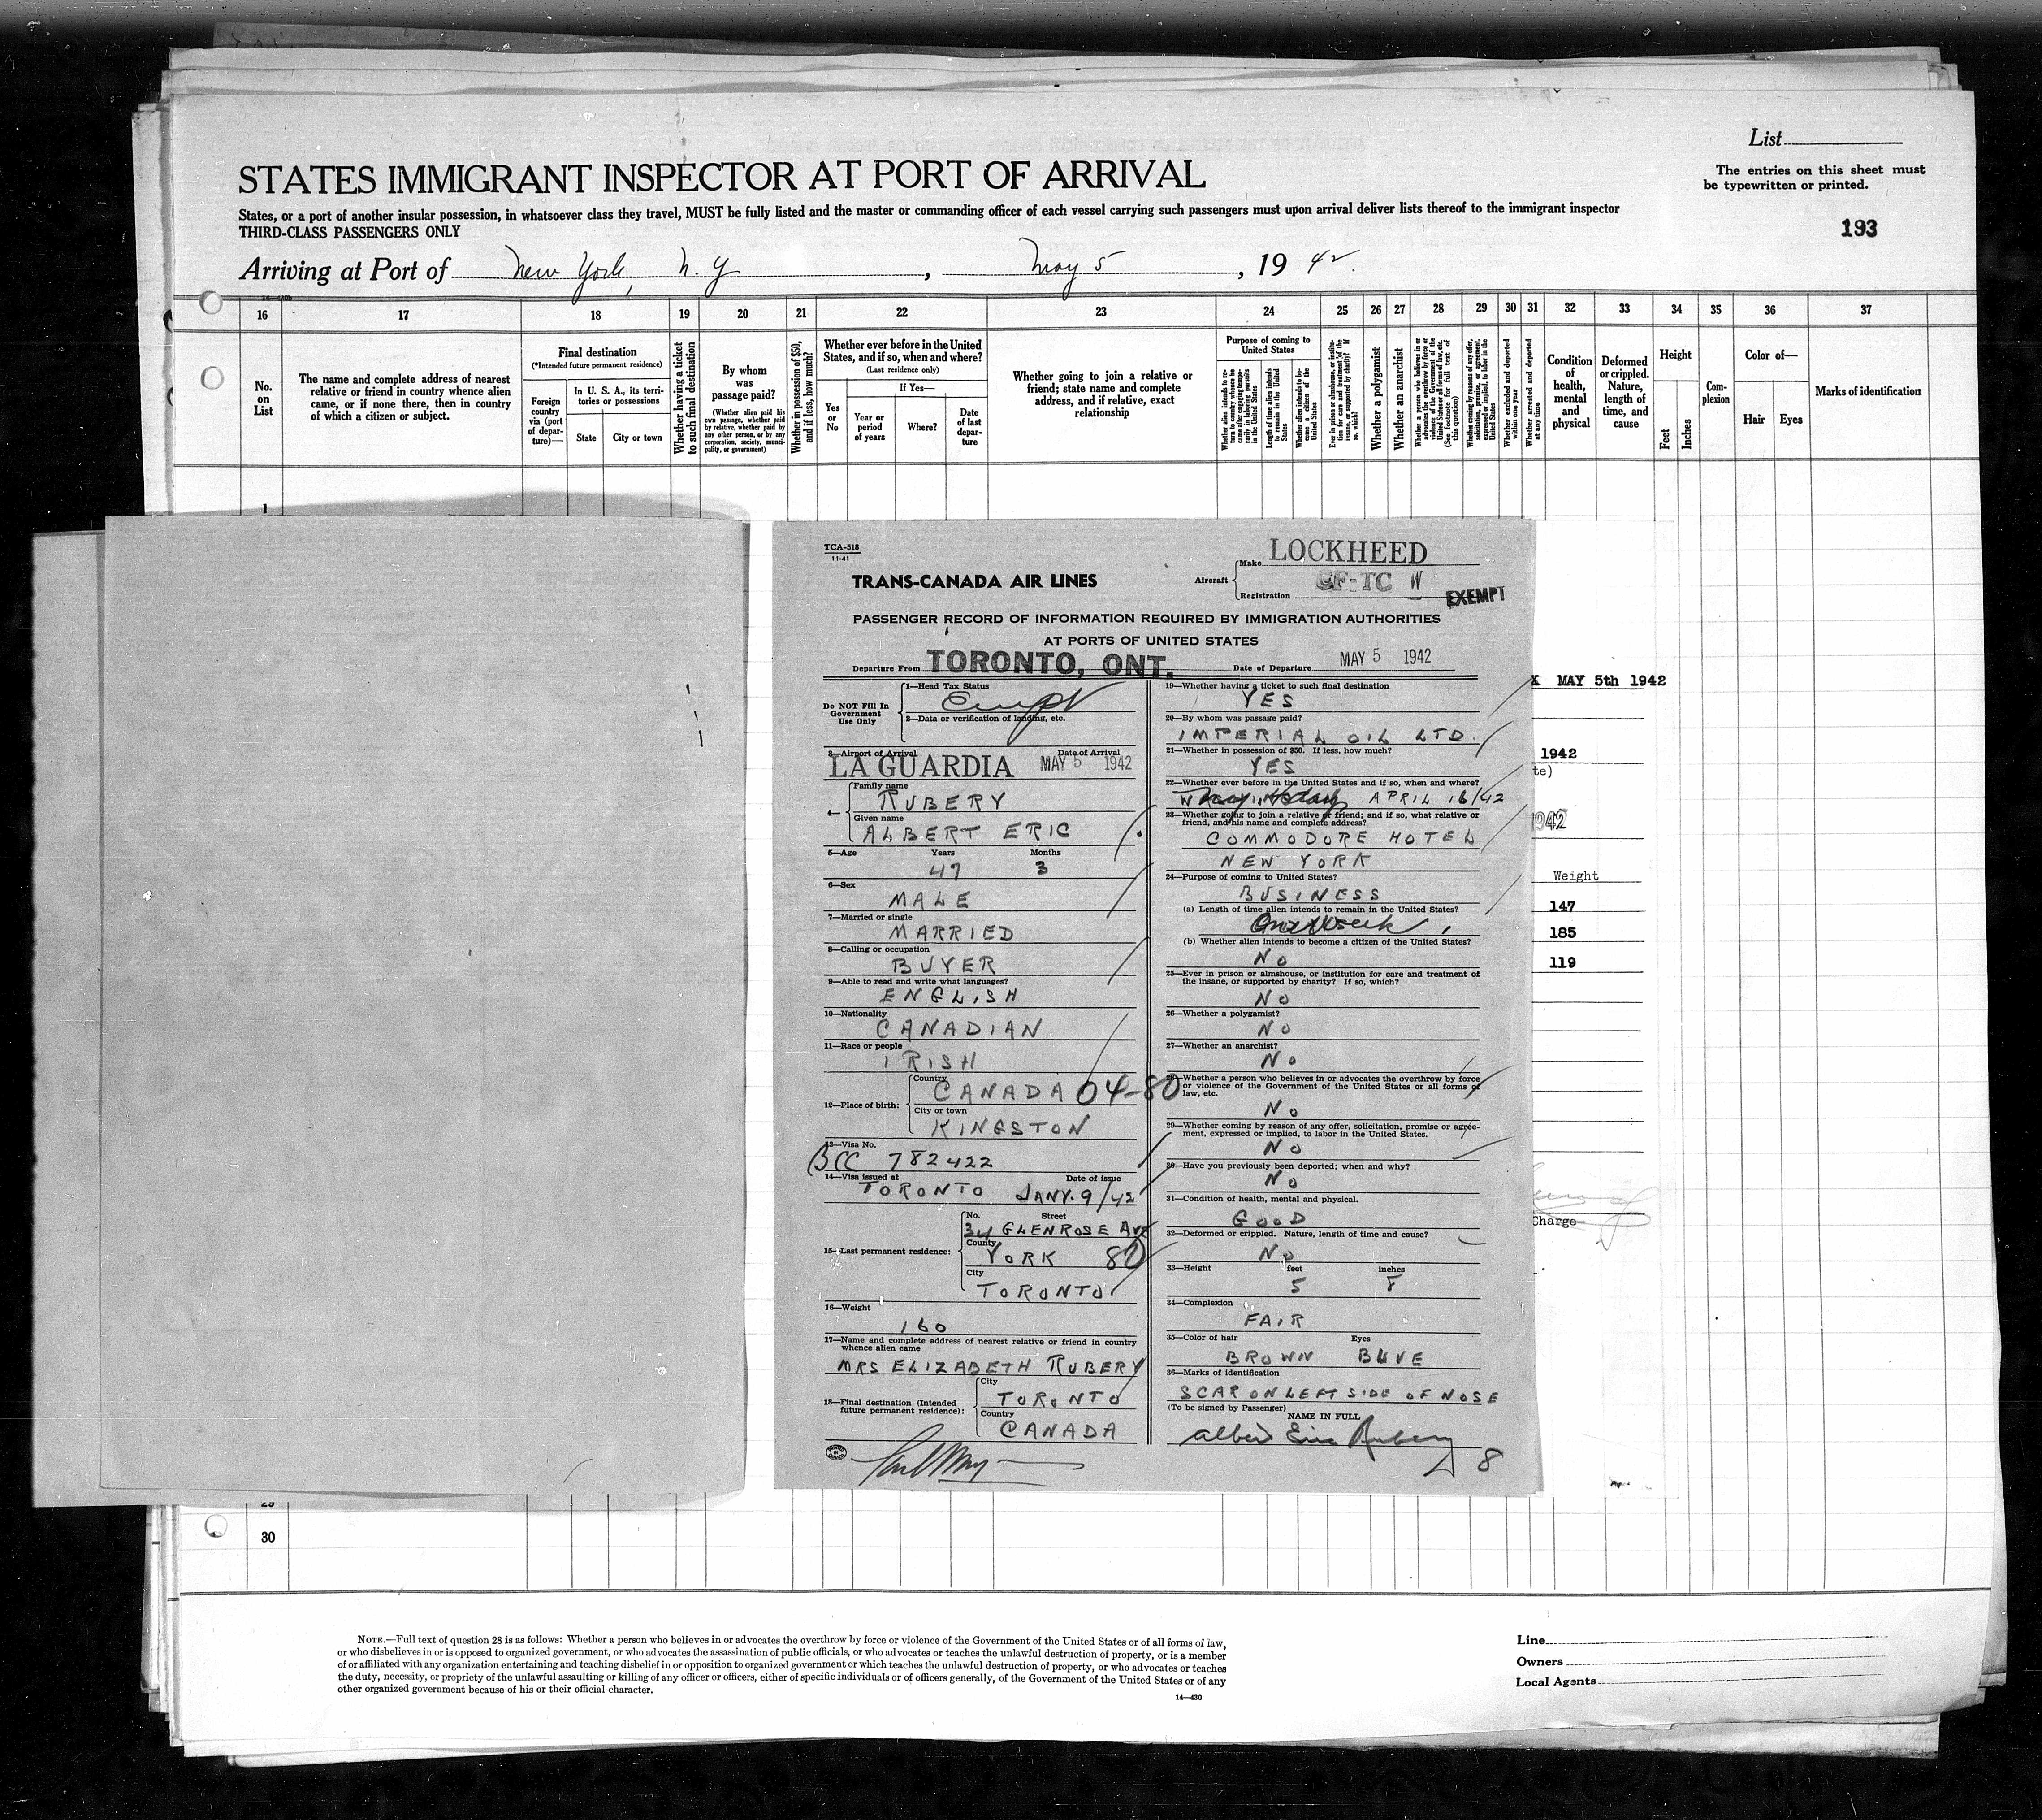 List
STATES IMMIGRANT INSPECTOR AT PORT OF ARRIVAL
The entries on this sheet must
be typewritten or printed.
States, or a port of another insular possession, in whatsoever class they travel, MUST be fully listed and the master or commanding officer of each vessel carrying such passengers must upon arrival deliver lists thereof to the immigrant inspector
THIRD-CLASS PASSENGERS ONLY
193
Arriving at Port of New York, N. Y , May 5 , 19 42.
16 17 18 19 20 21 22 23 24 25 26 27 28 29 30 31 32 33 34 35 36 37
No.
on
List
The name and complete address of nearest
relative or friend in country whence alien
came, or if none there, then in country
of which a citizen or subject.
Final destination
(*Intended future permanent residence)
Foreign
country
via (port
of depar-
ture)—
In U. S. A., its terri-
tories or possessions
State
City or town
Whether having a ticket
to such final destination
By whom
was
passage paid?
(Whether alien paid his
own passage, whether paid
by relative, whether paid by
any other person, or by any
corporation, society, munici-
pality, or government)
Whether in possession of $50,
and if less, how much?
Whether ever before in the United
States, and if so, when and where?
(Last residence only)
Yes
or
No
If Yes—
Year or
period
of years
Where?
Date
of last
depar-
ture
Whether going to join a relative or
friend; state name and complete
address, and if relative, exact
relationship
Purpose of coming to
United States
Length of time alien intends
to remain in the United
States
Whether alien intends to be-
come a citizen of the
United States
Whether a polygamist
Whether an anarchist
Whether excluded and deported
within one year
Whether arrested and deported
at any time
Condition
of
health,
mental
and
physical
Deformed
or crippled.
Nature,
length of
time, and
cause
Height
Feet
Inches
Com-
plexion
Color of—
Hair
Eyes
Marks of identification
1
TCA-518
11-41
TRANS-CANADA AIR LINES
Aircraft
Make LOCKHEED
Registration CF-TC W
EXEMPT
PASSENGER RECORD OF INFORMATION REQUIRED BY IMMIGRATION AUTHORITIES
AT PORTS OF UNITED STATES
Departure From TORONTO, ONT. Date of Departure MAY 5 1942
Do NOT Fill In
Government
Use Only
1—Head Tax Status
Exempt
2—Data or verification of landing, etc.
3—Airport of Arrival Date of Arrival
LA GUARDIA MAY 5 1942
4—
Family name
RUBERY
Given name
ALBERT ERIC
5—Age Years Months
47 3
6—Sex
MALE
7—Married or single
MARRIED
8—Calling or occupation
BUYER
9—Able to read and write what languages?
ENGLISH
10—Nationality
CANADIAN
11—Race or people
IRISH
12—Place of birth:
Country
CANADA 04-80
City or town
KINGSTON
13—Visa No.
BCC 782422
14—Visa issued at Date of issue
TORONTO JANY. 9/42
15—Last permanent residence:
No. Street
34 GLENROSE AVE
County
YORK 80
City
TORONTO
16—Weight
160
17—Name and complete address of nearest relative or friend in country
whence alien came
MRS ELIZABETH RUBERY
18—Final destination (Intended
future permanent residence):
City
TORONTO
Country
CANADA
19—Whether having a ticket to such final destination
YES
20—By whom was passage paid?
IMPERIAL OIL LTD.
21—Whether in possession of $50. If less, how much?
YES
22—Whether ever before in the United States and if so, when and where?
APRIL 16/42
23—Whether going to join a relative or friend; and if so, what relative or
friend, and his name and complete address?
COMMODORE HOTEL
NEW YORK
24—Purpose of coming to United States?
BUSINESS
(a) Length of time alien intends to remain in the United States?
One Week
(b) Whether alien intends to become a citizen of the United States?
NO
25—Ever in prison or almshouse, or institution for care and treatment of
the insane, or supported by charity? If so, which?
NO
26—Whether a polygamist?
NO
27—Whether an anarchist?
NO
28—Whether a person who believes in or advocates the overthrow by force
or violence of the Government of the United States or all forms of
law, etc.
NO
29—Whether coming by reason of any offer, solicitation, promise or agree-
ment, expressed or implied, to labor in the United States.
NO
30—Have you previously been deported; when and why?
NO
31—Condition of health, mental and physical.
GOOD
32—Deformed or crippled. Nature, length of time and cause?
NO
33—Height feet inches
5 8
34—Complexion
FAIR
35—Color of hair Eyes
BROWN BLUE
36—Marks of identification
SCAR ON LEFT SIDE OF NOSE
(To be signed by Passenger)
NAME IN FULL
Albert Eric Rubery
8
MAY 5th 1942
1942
te)
1942
Weight
147
185
119
Charge
29
30
NOTE.—Full text of question 28 is as follows: Whether a person who believes in or advocates the overthrow by force or violence of the Government of the United States or of all forms of law,
or who disbelieves in or is opposed to organized government, or who advocates the assassination of public officials, or who advocates or teaches the unlawful destruction of property, or is a member
of or affiliated with any organization entertaining and teaching disbelief in or opposition to organized government or which teaches the unlawful destruction of property, or who advocates or teaches
the duty, necessity, or propriety of the unlawful assaulting or killing of any officer or officers, either of specific individuals or of officers generally, of the Government of the United States or of any
other organized government because of his or their official character.
14—430
Line
Owners
Local Agents